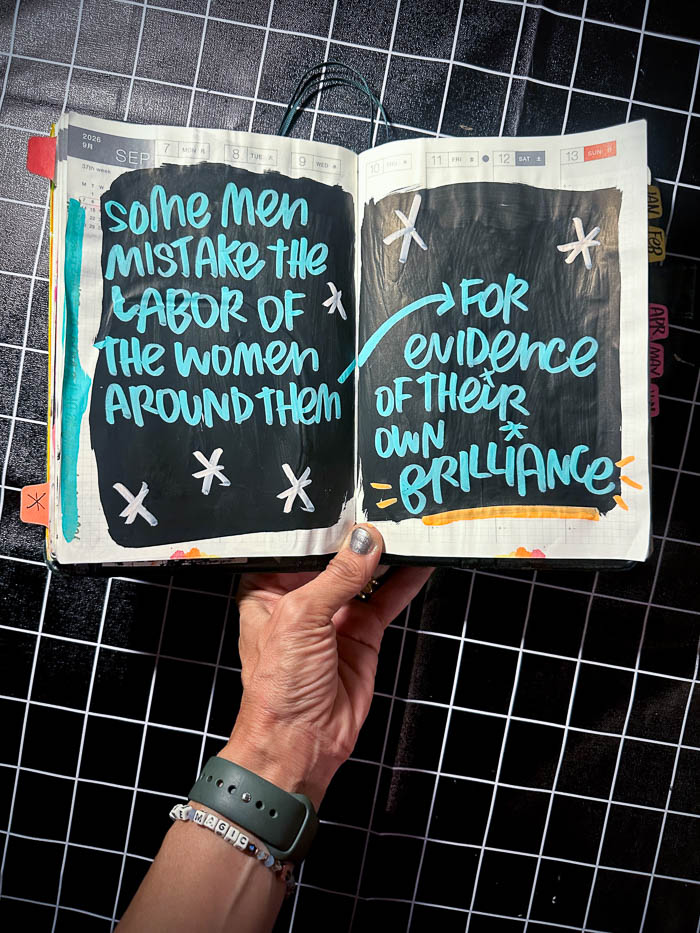 2026
9月
SEP
7 MON 月
8 TUE 火
9 WED 水
37th week
some men
mistake the
labor of
the women
around them
10
11 FRI 金
12 SAT 土
13 SUN 日
for
evidence
of their
own
brilliance
JAN
FEB
APR
MAY
MAGIC